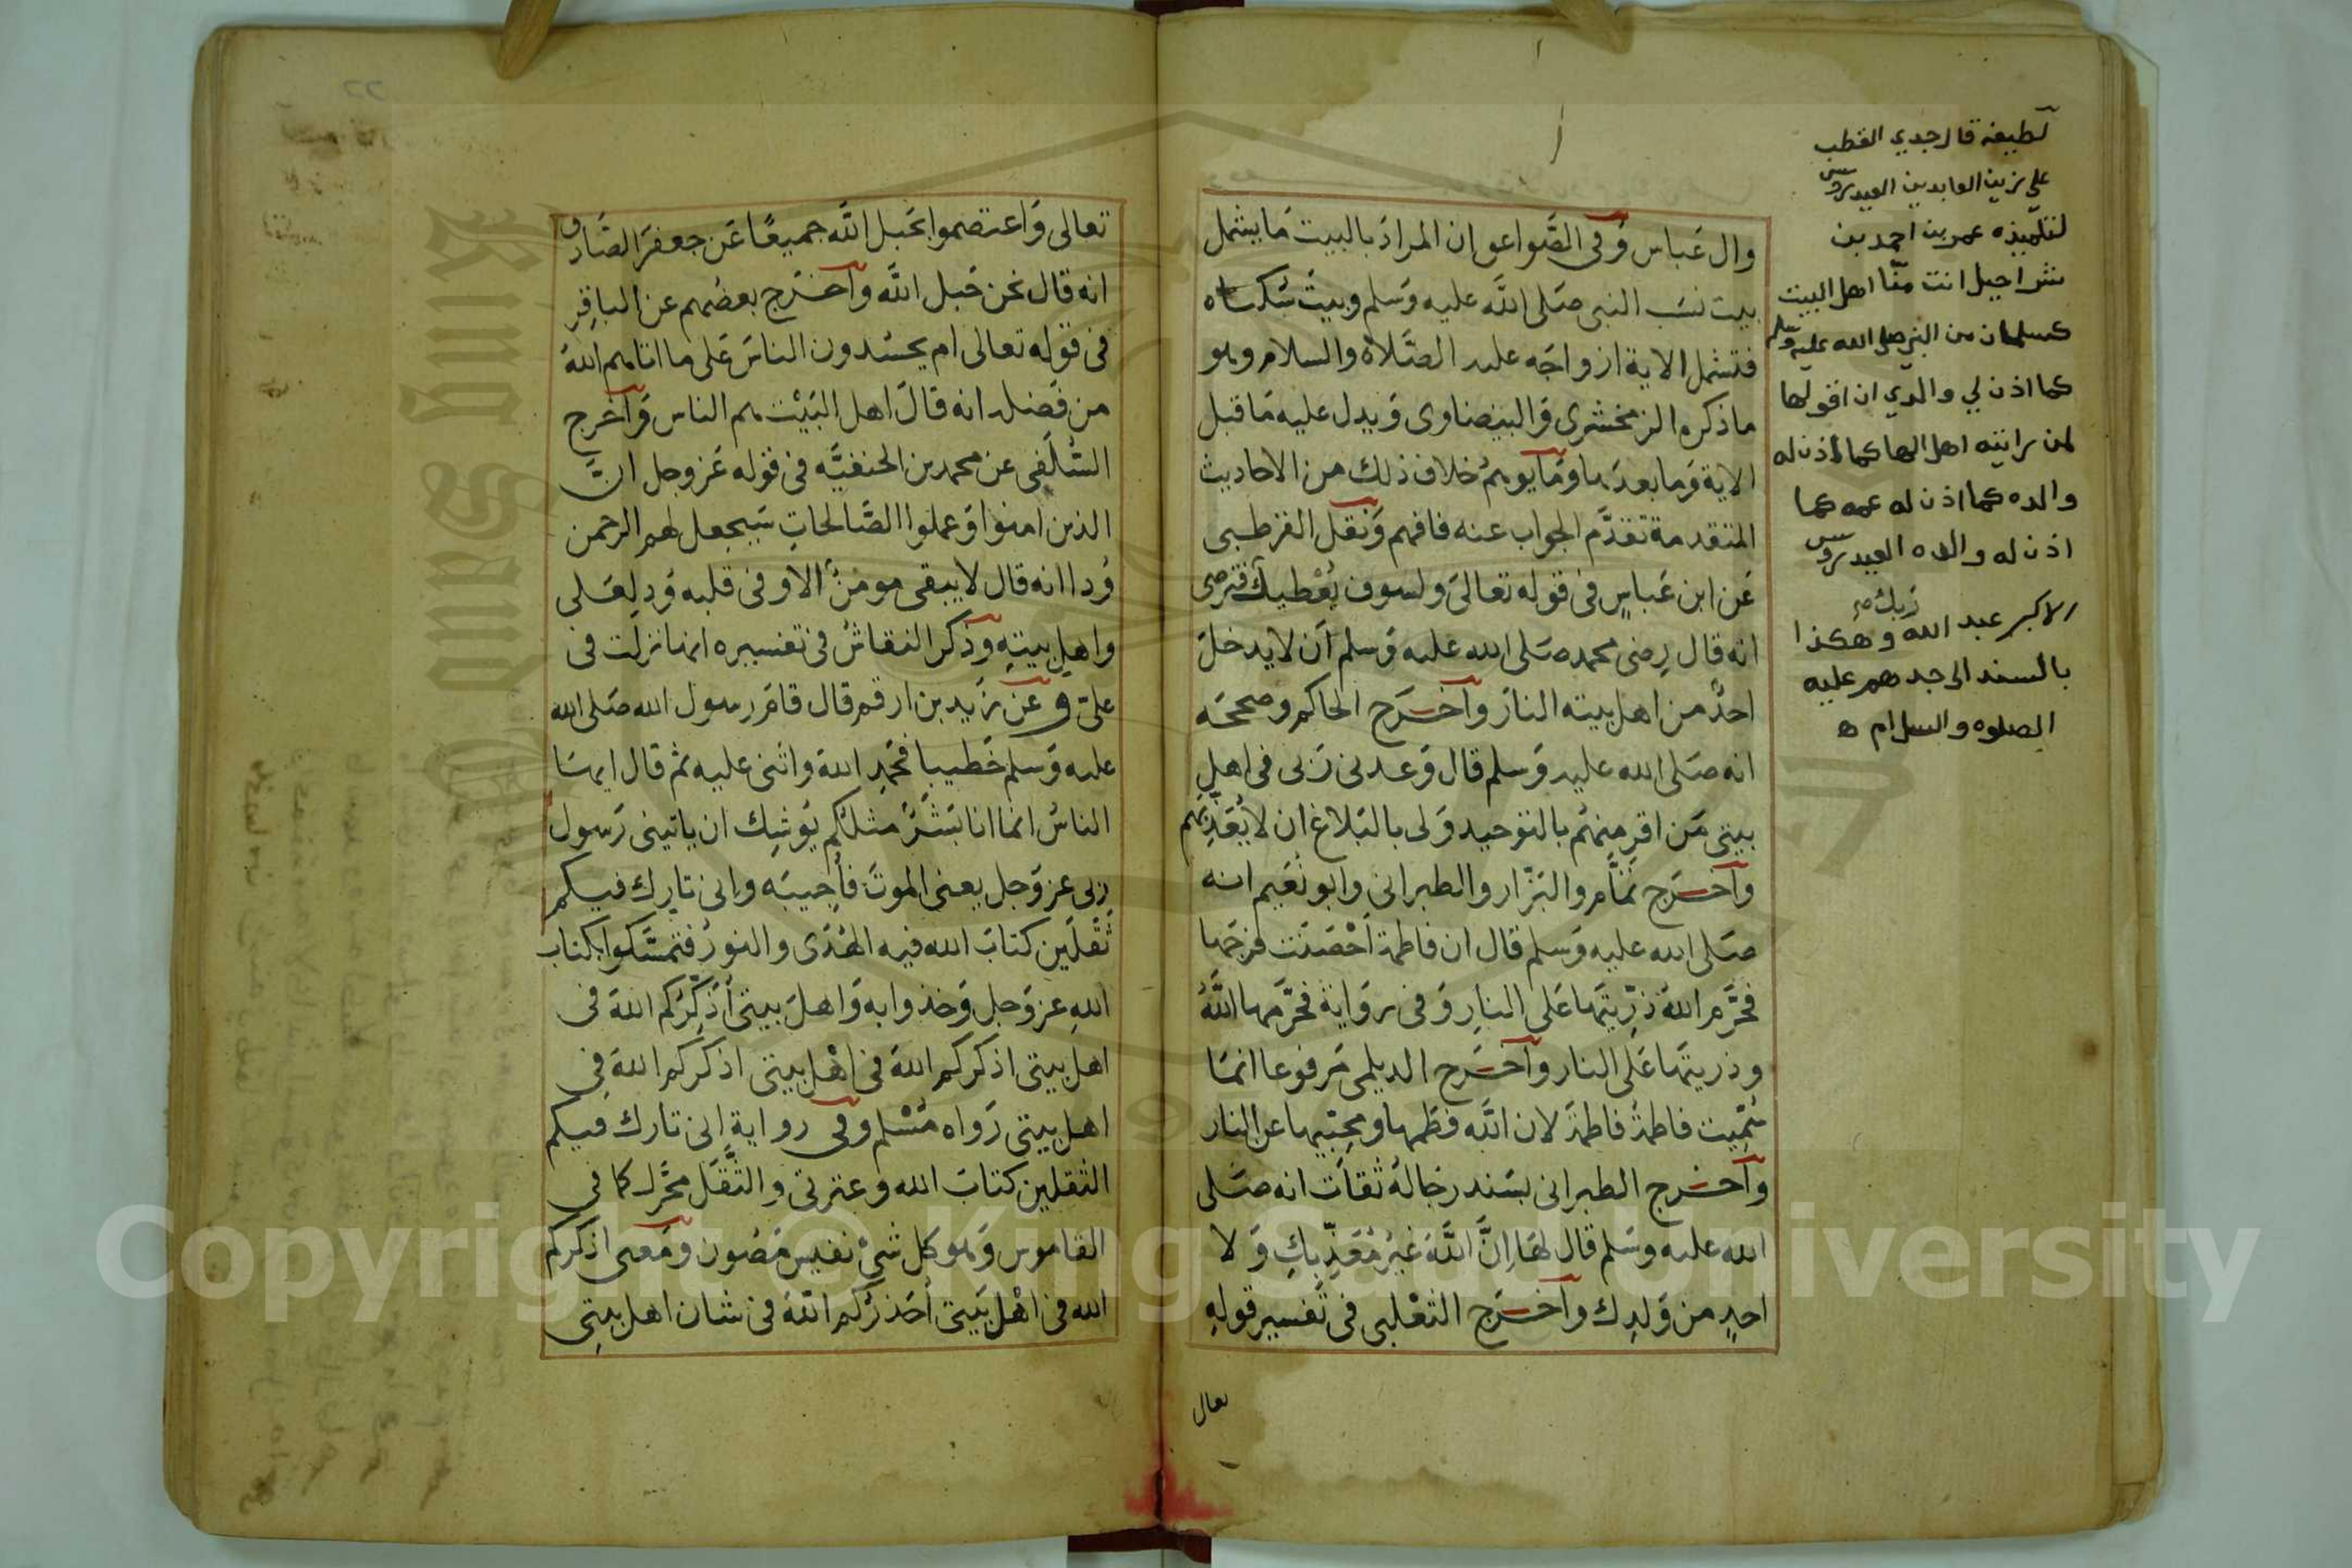 وال عَباس وَفي الصَّواعق ان المرادَ بالبيت مَا يشمل
بيت نسَب النبي صَلى اللَّه عليه وَسلم وبيتَ سُكناه
فتشمل الاية ازواجَه عليه الصَّلاة والسلام وهو
ماذكره الزمخشرى وَالبيضاوى وَيدل عليه مَا قبل
الاية وَمابعدَها ومَا يوهمُ خلاف ذلك من الاحاديث
المتقدمة تقدَّم الجواب عنه فافهم وَنقل القرطبى
عَن ابن عَباسٍ فى قوله تعالىَ ولسوف يُعْطيك رَبك فترضى
انه قال رِضى محمد صَلى الله عليه وَسلم اَن لايدخلَ
احدٌ من اهل بيته النارَ وَأخرَج الحاكم وصححَه
انه صَلى الله عليه وَسلم قال وَعدنى رَبى فى اهلِ
بيتى مَن اقرِ مِنهُم بالتوحيد وَلى بالبَلاغ ان لايُعَذِّبهم
وأخرَج تمَّام والبَزّار والطبرانى وابو نُعَيم انه
صَلى الله عليه وَسلم قال ان فاطمة اَحْصَنَت فرْجَها
فحَّرم اللهَ ذرِّيتَها عَلى النارِ وَفى روَاية فحَّرمَها اللَّهُ
وذريتَها عَلى النار وأخرَج الديلمى مَرفوعا انمَا
سُمِّيت فاطمةُ فاطمةَ لان اللَّه فطَمها ومحبِّيها عن النار
وأخرج الطبرانى بسَند رجَالهُ ثقات انه صَلى
الله عليه وسَلم قال لهَا اِنَّ اللَّهَ غيرُ مُعَذِّبِكِ وَلا
احدٍ من وَلدِك وأخرَج الثعْلبى فى تفسير قوله
تعال
لطيفه قال جدي القطب
علي زين العابدين العيدروس
لتلميذه عمر بن احمد بن
شراحيل انت منّا اهل البيت
كسلمان من النبي صلى الله عليه وسلم
كما اذن لي والدي ان اقولها
لمن رايته اهل لها كما اذن له
والده كما اذن له عمه كما
اذن له والده العيدروس
الاكبر عبد الله وهكذا
بالسند الى جدهم عليه
الصلوه والسلام ه
تعالى وَاعتصموا بحَبل اللَّه جميعًا عَن جعفرَ الصَّادق
انه قال نحن حَبل اللَّه وأخرَج بعضُهم عن الباقِرِ
فى قوله تعالى ام يحسُدون الناسَ عَلى ما اتاهم اللهُ
من فَضله انه قالَ اهل البَيْت هم الناس وَأخرج
السِّلَفى عن محمد بن الحنفيَّه فى قوله عَز وجل انَّ
الذين امنوا وَعملوا الصَّالحاتِ سَيجعل لهم الرحمن
وُدا انه قال لايبقى مومنٌ الا وفى قلبه وُد لِعَلى
واهلِ بيتِهِ وذكر النقاشُ فى تفسيره انها نزلت فى
علىّ وعَن زَيد بن ارقم قال قامَ رسول الله صَلى الله
عليه وَسلم خَطيبا فحَمِد اللهَ واثنى عليه ثم قال ايهَا
الناسُ انما انا بَشَرٌ مثلُكم يوُشِك ان ياتيَنى رَسولُ
ربى عز وَجل يعنى الموتَ فأُجيبَه وانى تارك فيكم
ثَقَلَين كتابَ الله فيه الهُدَى والنورُ فتمسَّكوا بكتاب
اللهِ عز وَجل وَخذوا به وَاهلَ بيتى أُذَكِّرُكم اللهَ فى
اهل بيتى اذكركم اللهَ فى اهْل بيتى اذكركم اللهَ فِى
اهل بيتى رَواه مُسْلم وفى رواية انى تارك فيكم
الثقلين كتابَ الله وعترتى والثَّقَل محَرَّك كما فى
القاموس وَهو كل شىْ نفيس مَصُون ومَعنى اذكركم
الله فى اهْل بَيتى أُحَذِّرُكم اللهَ فى شان اهل بيتِى